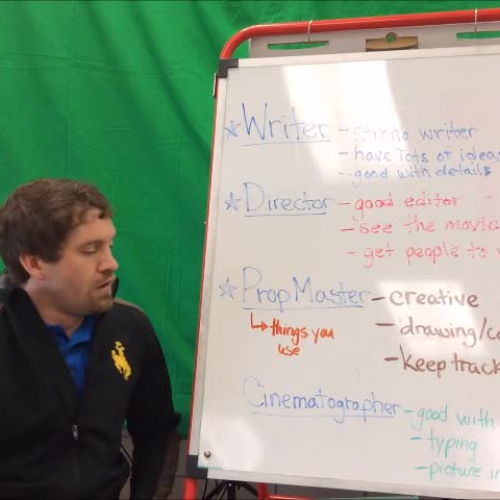 ☆ Writer - strong writer
- have lots of ideas
- good with details
☆ Director - good editor
- see the movie
- get people to
☆ PropMaster - creative
↳ things you use
- drawing/co
- keep track
Cinematographer - good with
- typing
- picture in